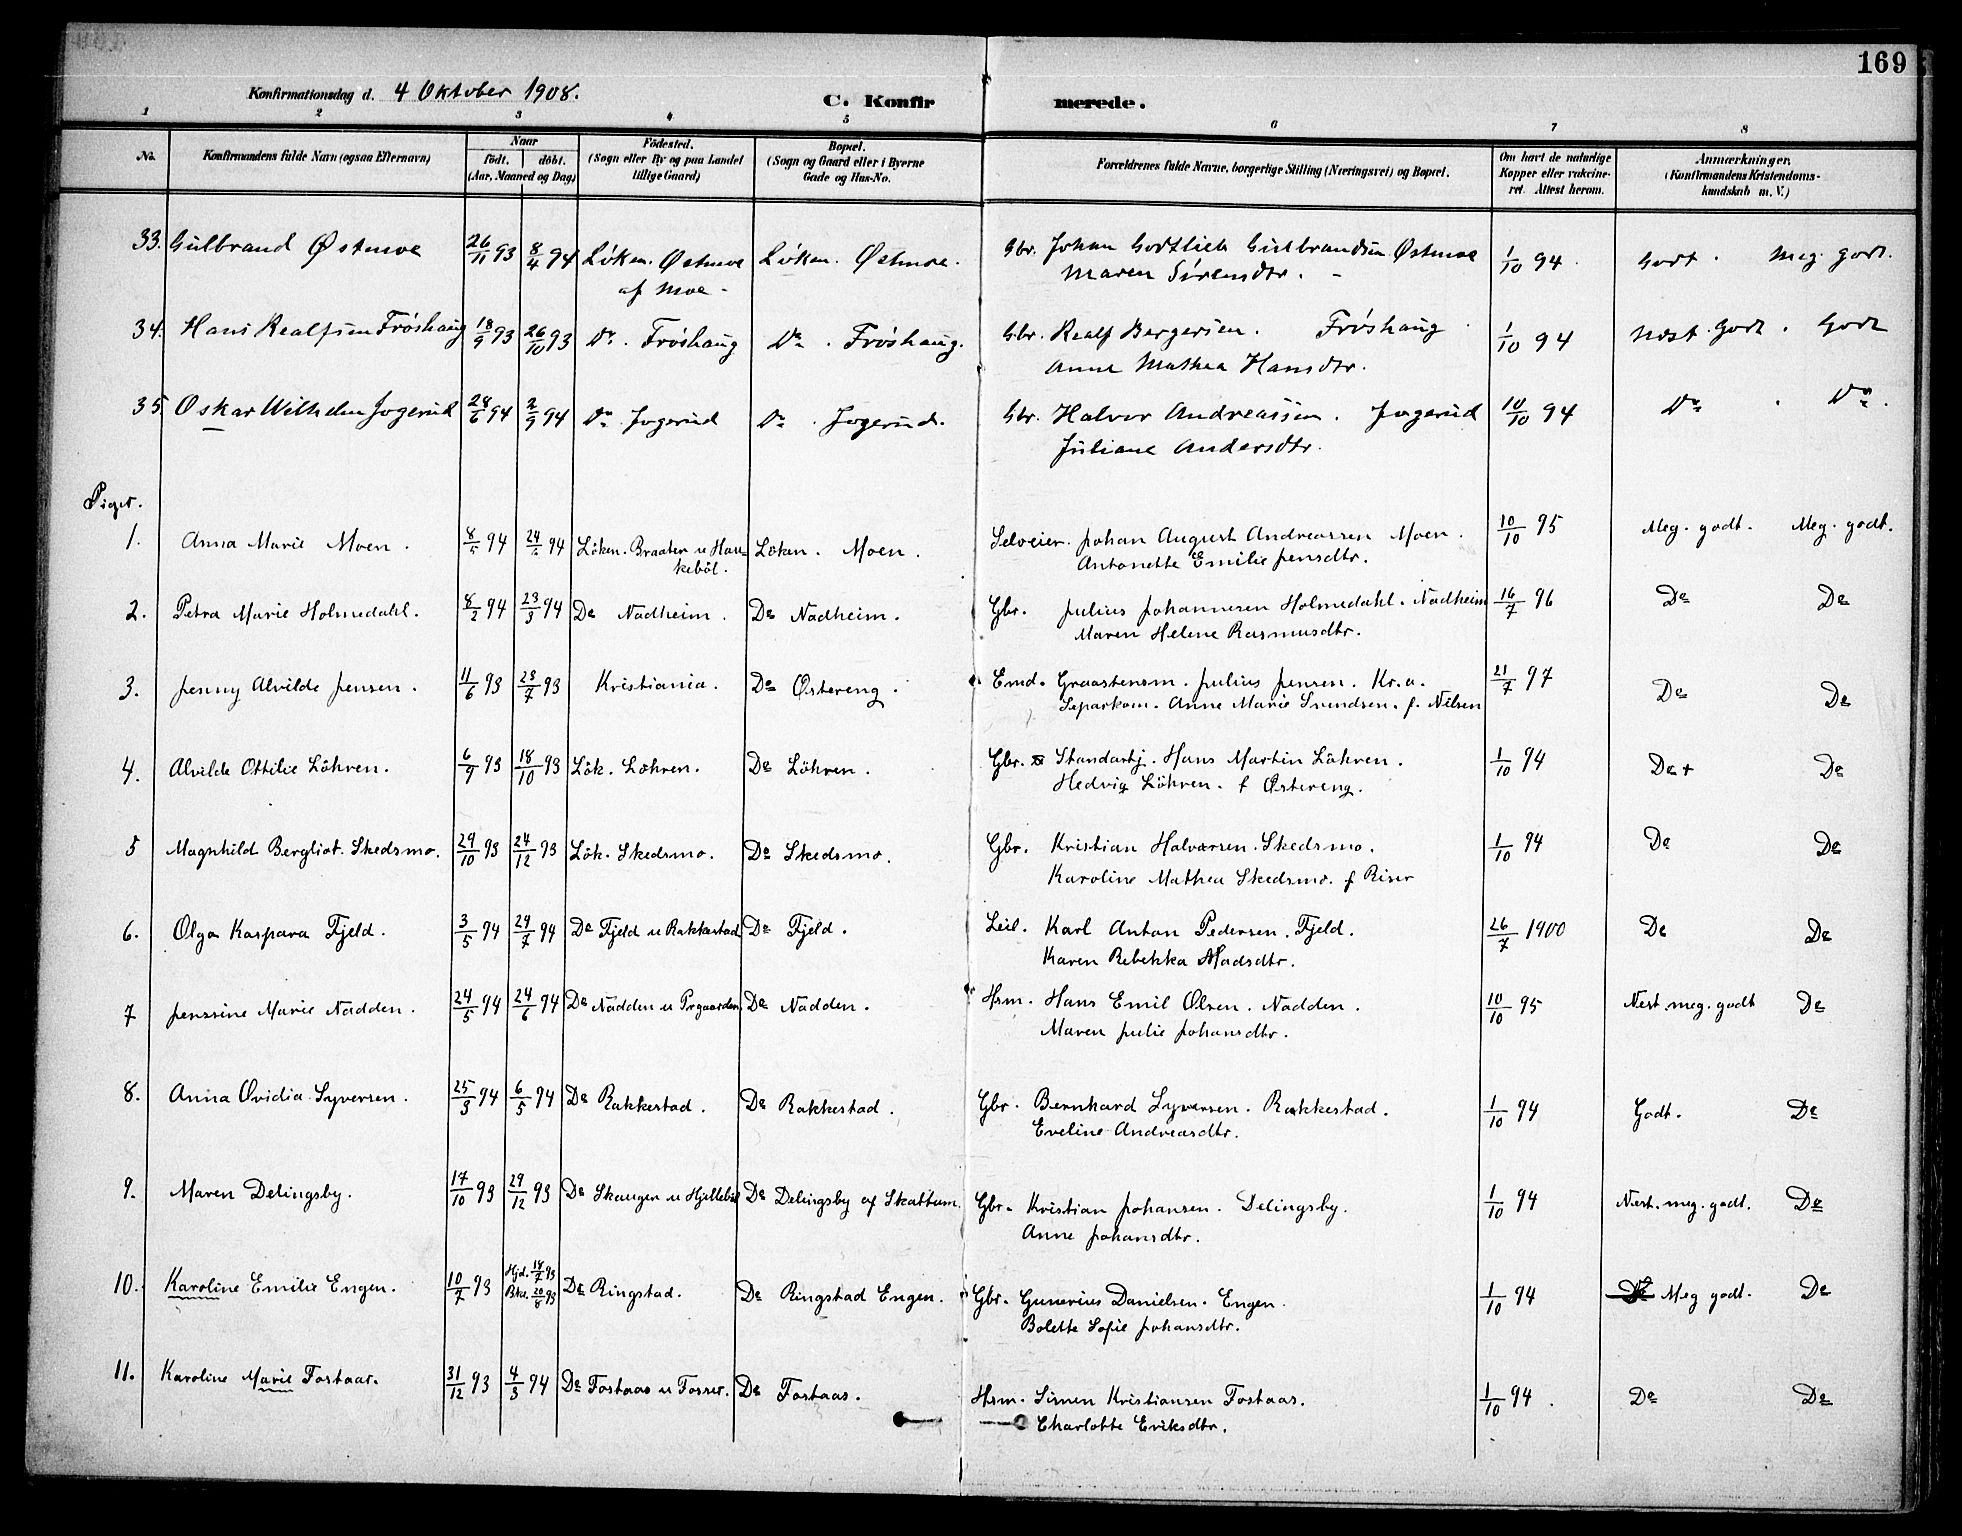 169
Konfirmationsdag d. 4 Oktober 1908.
C. Konfirmerede.
1 2 3 4 5 6 7 8
No.
Konfirmandens fulde Navn (ogsaa Efternavn)
Naar
født. døbt.
(Aar, Maaned og Dag)
Fødested.
(Sogn eller By og paa Landet
tillige Gaard)
Bopæl.
(Sogn og Gaard eller i Byerne
Gade og Hus-No.
Forældrenes fulde Navne, borgerlige Stilling (Næringsvei) og Bopæl.
Om havt de naturlige
Kopper eller vakcine-
ret. Attest herom.
Anmærkninger.
(Konfirmandens Kristendoms-
kundskab m. V.)
33. Gulbrand Østmoe 26/11 93 8/4 94 Løken. Østmoe Løken. Østmoe. Gbr. Johan Godtlieb Gulbrandsen Østmoe 1/10 94 Godt. Meg. godt.
af Moe - Maren Sørensdtr. -
34. Hans Realfsen Frøshaug 18/9 93 26/10 93 Do. Frøshaug Do. Frøshaug. Gbr. Realf Bergersen. Frøshaug 1/10 94 Næst Godt. Godt
Anne Mathea Hansdtr.
35. Oskar Wilhelm Jogerud 28/6 94 2/9 94 Do. Jogerud Do. Jogerud. Gbr. Halvor Andreassen. Jogerud 10/10 94 Do. Do.
Juliane Andersdtr.
Piger.
1. Anna Marie Moen. 8/5 94 24/ 94 Löken. Braaten u Hau- Löken. Moen. Selveier. Johan August Andreassen Moen. 10/10 95 Meg. godt. Meg. godt.
keböl. Antonette Emilie Jensdtr.
2. Petra Marie Holmedahl. 8/2 94 23/3 94 Do Nadheim. Do Nadheim. Gbr. Julius Johannesen Holmedahl. Nadheim 16/7 96 Do Do
Maren Helene Rasmusdtr.
3. Jenny Alvilde Jensen. 11/6 93 23/7 93 Kristiania. Do Østereng. Emd. Graastensm. Julius Jensen. Kr.a. 21/7 97 Do Do
Separkom. Anne Marie Svendsen. f. Nilsen
4. Alvilde Ottilie Löhren. 6/9 93 18/10 93 Lök. Löhren. Do Löhren. Gbr. Standartj. Hans Martin Löhren. 1/10 94 Do + Do
Hedvig Löhren. f Østereng.
5 Magnhild Bergliot. Skedsmo. 29/10 93 24/12 93 Lök. Skedsmo. Do Skedsmo. Gbr. Kristian Halvorsen. Skedsmo. 1/10 94 Do Do
Karoline Mathea Skedsmo. f Riser
6. Olga Kaspara Fjeld. 3/5 94 29/7 94 Do Fjeld u Rakkestad Do Fjeld. Leil. Karl Anton Pedersen. Fjeld. 26/7 1900 Do Do
Karen Rebekka Madsdtr.
7 Jenssine Marie Nadden. 24/5 94 24/6 94 Do Nadden u Prgaarden Do Nadden. Hsm. Hans Emil Olsen. Nadden. 10/10 95 Nest. meg. godt Do
Maren Julie Johansdtr.
8. Anna Ovidia Syversen. 25/3 94 6/5 94 Do Rakkestad. Do Rakkestad. Gbr. Bernhard Syversen. Rakkestad. 1/10 94 Godt. Do
Eveline Andreasdtr.
9. Maren Delingsby. 17/10 93 29/12 93 Do Skaugen u Hjelleböl Do Delingsby af Skattum. Gbr. Kristian Johansen. Delingsby. 1/10 94 Nest. meg. godt. Do
Anne Johansdtr.
10. Karoline Emilie Engen. 10/7 93 Hjd. 18/7 93 Do Ringstad. Do Ringstad Engen. Gbr. Gunerius Danielsen. Engen. 1/10 94 Meg godt. Do
20/8 93 Bolette Sofie Johansdtr.
11. Karoline Marie Fostaas. 31/12 93 4/3 94 Do Fostaas u Fosser. Do Fostaas. Hsm. Simen Kristiansen Fostaas. 1/10 94. Do Do
Charlotte Eriksdtr.